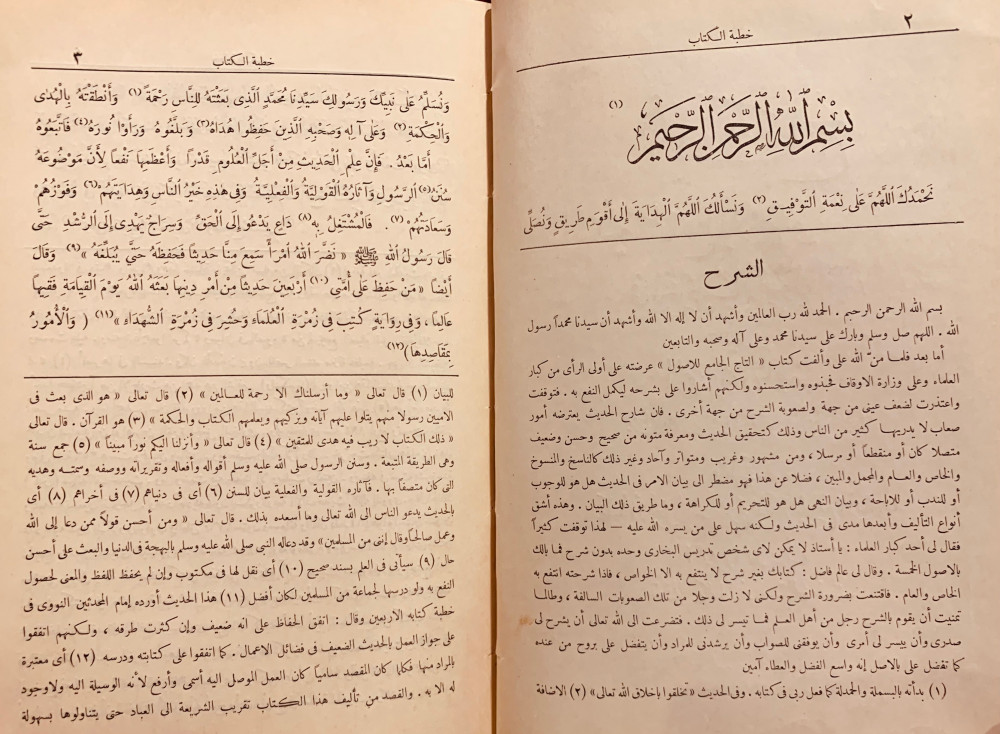 ٢
خطبة الكتاب
بِسْمِ ٱللهِ ٱلرَّحْمَٰنِ ٱلرَّحِيمِ (١)
نَحْمَدُكَ اللّٰهُمَّ عَلَى نِعْمَةِ التَّوْفِيقِ (٢) وَنَسْأَلُكَ اللّٰهُمَّ الْهِدَايَةَ إِلَى أَقْوَمِ طَرِيقٍ وَنُصَلِّى
الشرح
بسم الله الرحمن الرحيم . الحمد لله رب العالمين وأشهد أن لا إله الا الله وأشهد أن سيدنا محمداً رسول
الله . اللهم صل وسلم وبارك على سيدنا محمد وعلى آله وصحبه والتابعين
أما بعد فلما منّ الله على وألفت كتاب « التاج الجامع للاصول » عرضته على أولى الرأى من كبار
العلماء وعلى وزارة الاوقاف فحبذوه واستحسنوه ولكنهم أشاروا على بشرحه ليكمل النفع به . فتوقفت
واعتذرت لضعف عينى من جهة ولصعوبة الشرح من جهة أخرى . فان شارح الحديث يعترضه أمور
صعاب لا يدريها كثير من الناس وذلك كتحقيق الحديث ومعرفة متونه من صحيح وحسن وضعيف
متصلا كان أو منقطعاً أو مرسلا ، ومن مشهور وغريب ومتواتر وآحاد وغير ذلك كالناسخ والمنسوخ
والخاص والعـام والمجمل والمبين ، فضلا عن هذا فهو مضطر الى بيان الامر فى الحديث هل هو للوجوب
أو للندب أو للاباحة ، وبيان النهى هل هو للتحريم أو للكراهة ، وما طريق ذلك البيان . وهذه أشق
أنواع التأليف وأبعدها مدى فى الحديث ولكنه سهل على من يسره الله عليه — لهذا توقفت كثيراً
فقال لى أحد كبار العلماء : يا أستاذ لا يمكن لاى شخص تدريس البخارى وحده بدون شرح فما بالك
بالاصول الخمسة . وقال لى عالم فاضل : كتابك بغير شرح لا ينتفع به الا الخواص ، فاذا شرحته انتفع به
الخاص والعام . فاقتنعت بضرورة الشرح ولكنى لا زلت وجلا من تلك الصعوبات السالفة ، وطالما
تمنيت أن يقوم بالشرح رجل من أهل العلم فما تيسر لى ذلك . فتضرعت الى الله تعالى أن يشرح لى
صدرى وأن ييسر لى أمرى وأن يوفقنى للصواب وأن يرشدنى للمراد وأن يتفضل على بروح من عنده
كما تفضل على بالاصل إنه واسع الفضل والعطاء آمين
(١) بدأته بالبسملة والحمدلة كما فعل ربى فى كتابه . وفى الحديث «تخلقوا بإخلاق الله تعالى» (٢) الاضافة
٣
خطبة الكتاب
وَنُسَلِّمُ عَلَى نَبِيِّكَ وَرَسُولِكَ سَيِّدِنَا مُحَمَّدٍ الَّذِى بَعَثْتَهُ لِلنَّاسِ رَحْمَةً (١) وَأَنْطَقْتَهُ بِالْهُدَى
وَالْحِكْمَةِ (٢) وَعَلَى آلِهِ وَصَحْبِهِ الَّذِينَ حَفِظُوا هُدَاهُ (٣) وَبَلَّغُوهُ وَرَأَوْا نُورَهُ (٤) فَاتَّبَعُوهُ
أَمَّا بَعْدُ . فَإِنَّ عِلْمَ الْحَدِيثِ مِنْ أَجَلِّ الْعُلُومِ قَدْرًا وَأَعْظَمِهَا نَفْعًا لِأَنَّ مَوْضُوعَهُ
سُنَنُ (٥) الرَّسُولِ وَآثَارُهُ الْقَوْلِيَّةُ وَالْفِعْلِيَّةُ وَفِى هٰذِهِ خَيْرُ النَّاسِ وَهِدَايَتُهُمْ (٦) وَفَوْزُهُمْ
وَسَعَادَتُهُمْ (٧) . فَالْمُشْتَغِلُ بِهِ (٨) دَاعٍ يَدْعُو إِلَى الْحَقِّ وَسِرَاجٌ يَهْدِى إِلَى الرُّشْدِ حَتَّى
قَالَ رَسُولُ اللهِ ﷺ « نَضَّرَ اللهُ امْرَأً سَمِعَ مِنَّا حَدِيثًا فَحَفِظَهُ حَتَّى يُبَلِّغَهُ » (٩) وَقَالَ
أَيْضًا « مَنْ حَفِظَ عَلَى أُمَّتِى (١٠) أَرْبَعِينَ حَدِيثًا مِنْ أَمْرِ دِينِهَا بَعَثَهُ اللهُ يَوْمَ الْقِيَامَةِ فَقِيهًا
عَالِمًا ، وَفِى رِوَايَةٍ كُتِبَ فِى زُمْرَةِ الْعُلَمَاءِ وَحُشِرَ فِى زُمْرَةِ الشُّهَدَاءِ » (١١) ( وَالْأُمُورُ
بِمَقَاصِدِهَا ) (١٢)
للبيان (١) قال تعالى « وما أرسلناك الا رحمة للعـالمين » (٢) قال تعالى « هو الذى بعث فى
الاميين رسولا منهم يتلوا عليهم آياته ويزكيهم ويعلمهم الكتاب والحكمة » (٣) هو القرآن . قال تعالى
« ذلك الكتاب لا ريب فيه هدى للمتقين » (٤) قال تعالى « وأنزلنا اليكم نوراً مبيناً » (٥) جمع سنة
وهى الطريقة المتبعة . وسنن الرسول صلى الله عليه وسلم أقواله وأفعاله وتقريراته ووصفه وسمته وهديه
التى كان متصفاً بها . فآثاره القولية والفعلية بيان للسنن (٦) أى فى دنياهم (٧) فى أخراهم (٨) أى
بالحديث يدعو الناس الى الله تعالى وما أسعده بذلك . قال تعالى « ومن أحسن قولاً ممن دعا إلى الله
وعمل صالحاً وقال إننى من المسلمين » وقد دعا له النبى صلى الله عليه وسلم بالبهجة فى الدنيا والبعث على أحسن
حال (٩) سيأتى فى العلم بسند صحيح (١٠) أى نقل لها فى مكتوب وإن لم يحفظ اللفظ والمعنى لحصول
النفع به ولو درسها لجماعة من المسلمين لكان أفضل (١١) هذا الحديث أورده إمام المحدثين النووى فى
خطبة كتابه الاربعين وقال : اتفق الحفاظ على انه ضعيف وإن كثرت طرقه ، ولكنهم اتفقوا
على جواز العمل بالحديث الضعيف فى فضائل الاعمال . كما اتفقوا على كتابته ودرسه (١٢) أى معتبرة
بالمراد منها فكلما كان المقصد سامياً كان العمل الموصل اليه أسمى وأرفع لأنه الوسيلة اليه ولا وجود
له الا به . والقصد من تأليف هذا الكتاب تقريب الشريعة الى العباد حتى يتناولوها بسهولة